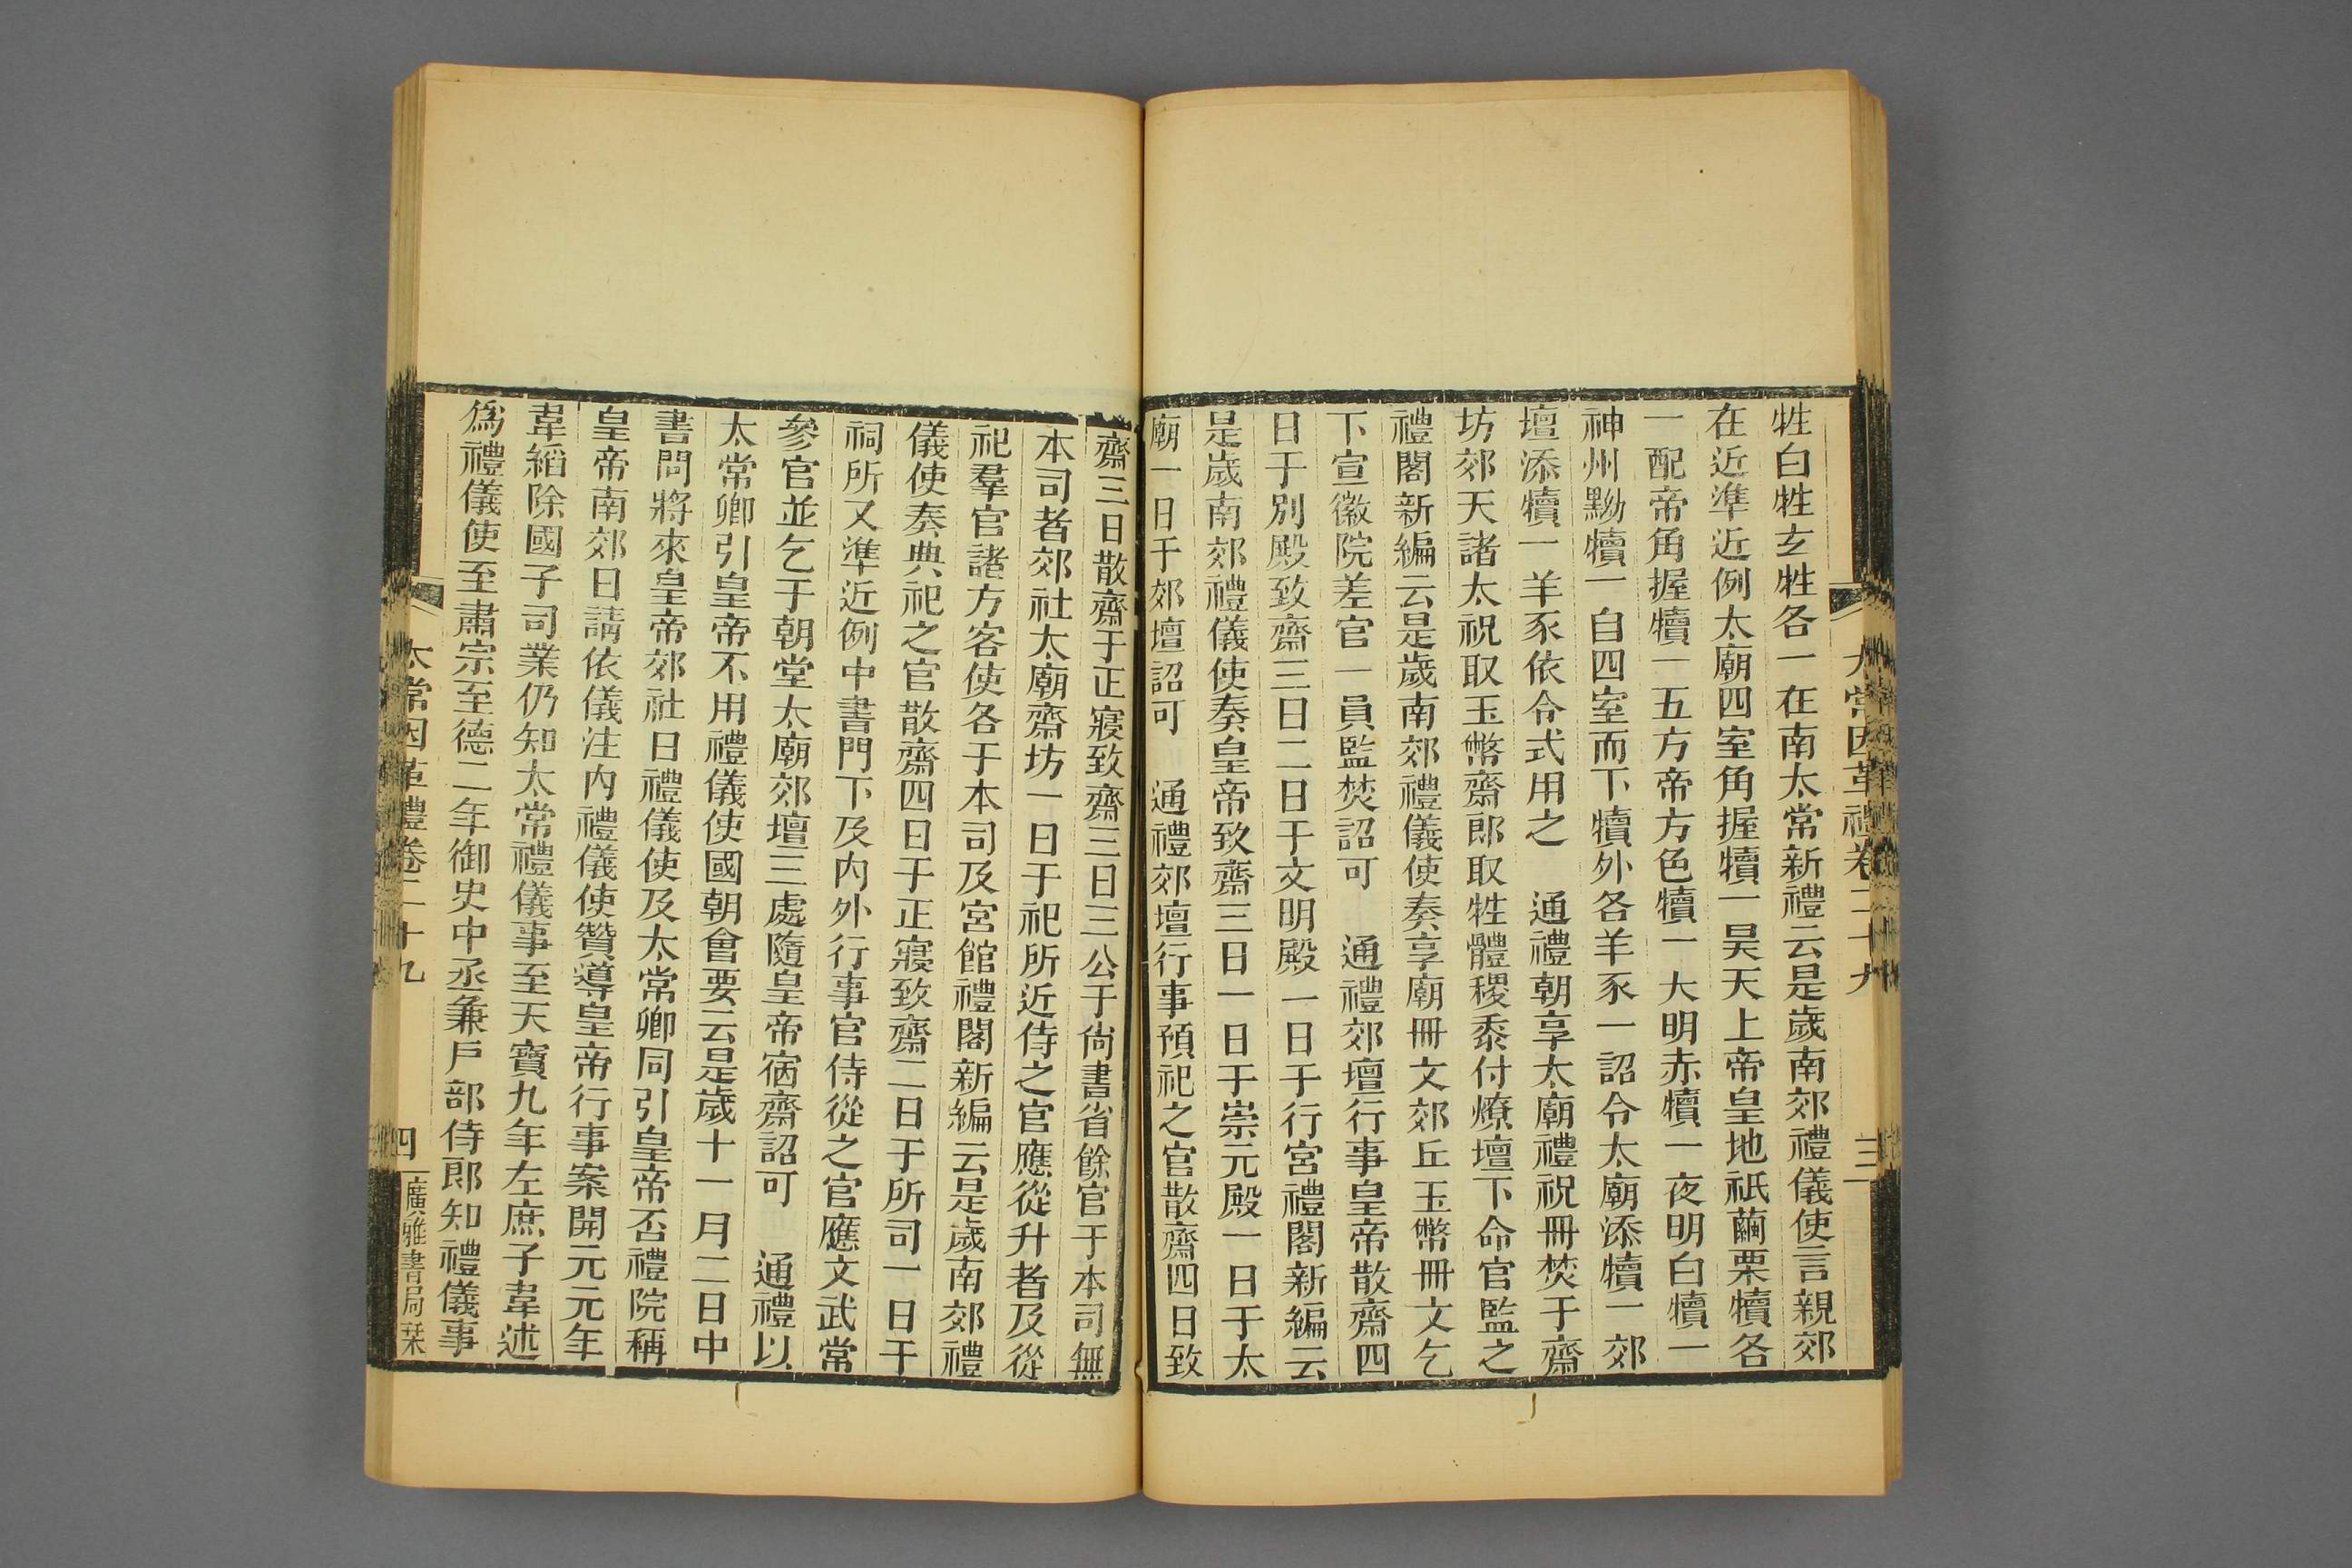 太常因革禮卷二十九 三
牲白牲玄牲各一在南太常新禮云是歲南郊禮儀使言親郊
在近準近例太廟四室角握犢一昊天上帝皇地祇繭栗犢各
一配帝角握犢一五方帝方色犢一大明赤犢一夜明白犢一
神州黝犢一自四室而下犢外各羊豕一詔令太廟添犢一郊
壇添犢一羊豕依令式用之　通禮朝享太廟禮祝冊焚于齋
坊郊天諸太祝取玉幣齋郎取牲體稷黍付燎壇下命官監之
禮閣新編云是歲南郊禮儀使奏享廟冊文郊丘玉幣冊文乞
下宣徽院差官一員監焚詔可　通禮郊壇行事皇帝散齋四
日于別殿致齋三日二日于文明殿一日于行宮禮閣新編云
是歲南郊禮儀使奏皇帝致齋三日一日于崇元殿一日于太
廟一日于郊壇詔可　通禮郊壇行事預祀之官散齋四日致
齋三日散齋于正寢致齋三日三公于尙書省餘官于本司無
本司者郊社太廟齋坊一日于祀所近侍之官應從升者及從
祀羣官諸方客使各于本司及宮館禮閣新編云是歲南郊禮
儀使奏典祀之官散齋四日于正寢致齋二日于所司一日于
祠所又準近例中書門下及內外行事官侍從之官應文武常
參官並乞于朝堂太廟郊壇三處隨皇帝宿齋詔可　通禮以
太常卿引皇帝不用禮儀使國朝會要云是歲十一月二日中
書問將來皇帝郊社日禮儀使及太常卿同引皇帝否禮院稱
皇帝南郊日請依儀注內禮儀使贊導皇帝行事案開元元年
韋縚除國子司業仍知太常禮儀事至天寶九年左庶子韋述
爲禮儀使至肅宗至德二年御史中丞兼戶部侍郎知禮儀事
太常因革禮卷二十九 四 廣雅書局栞